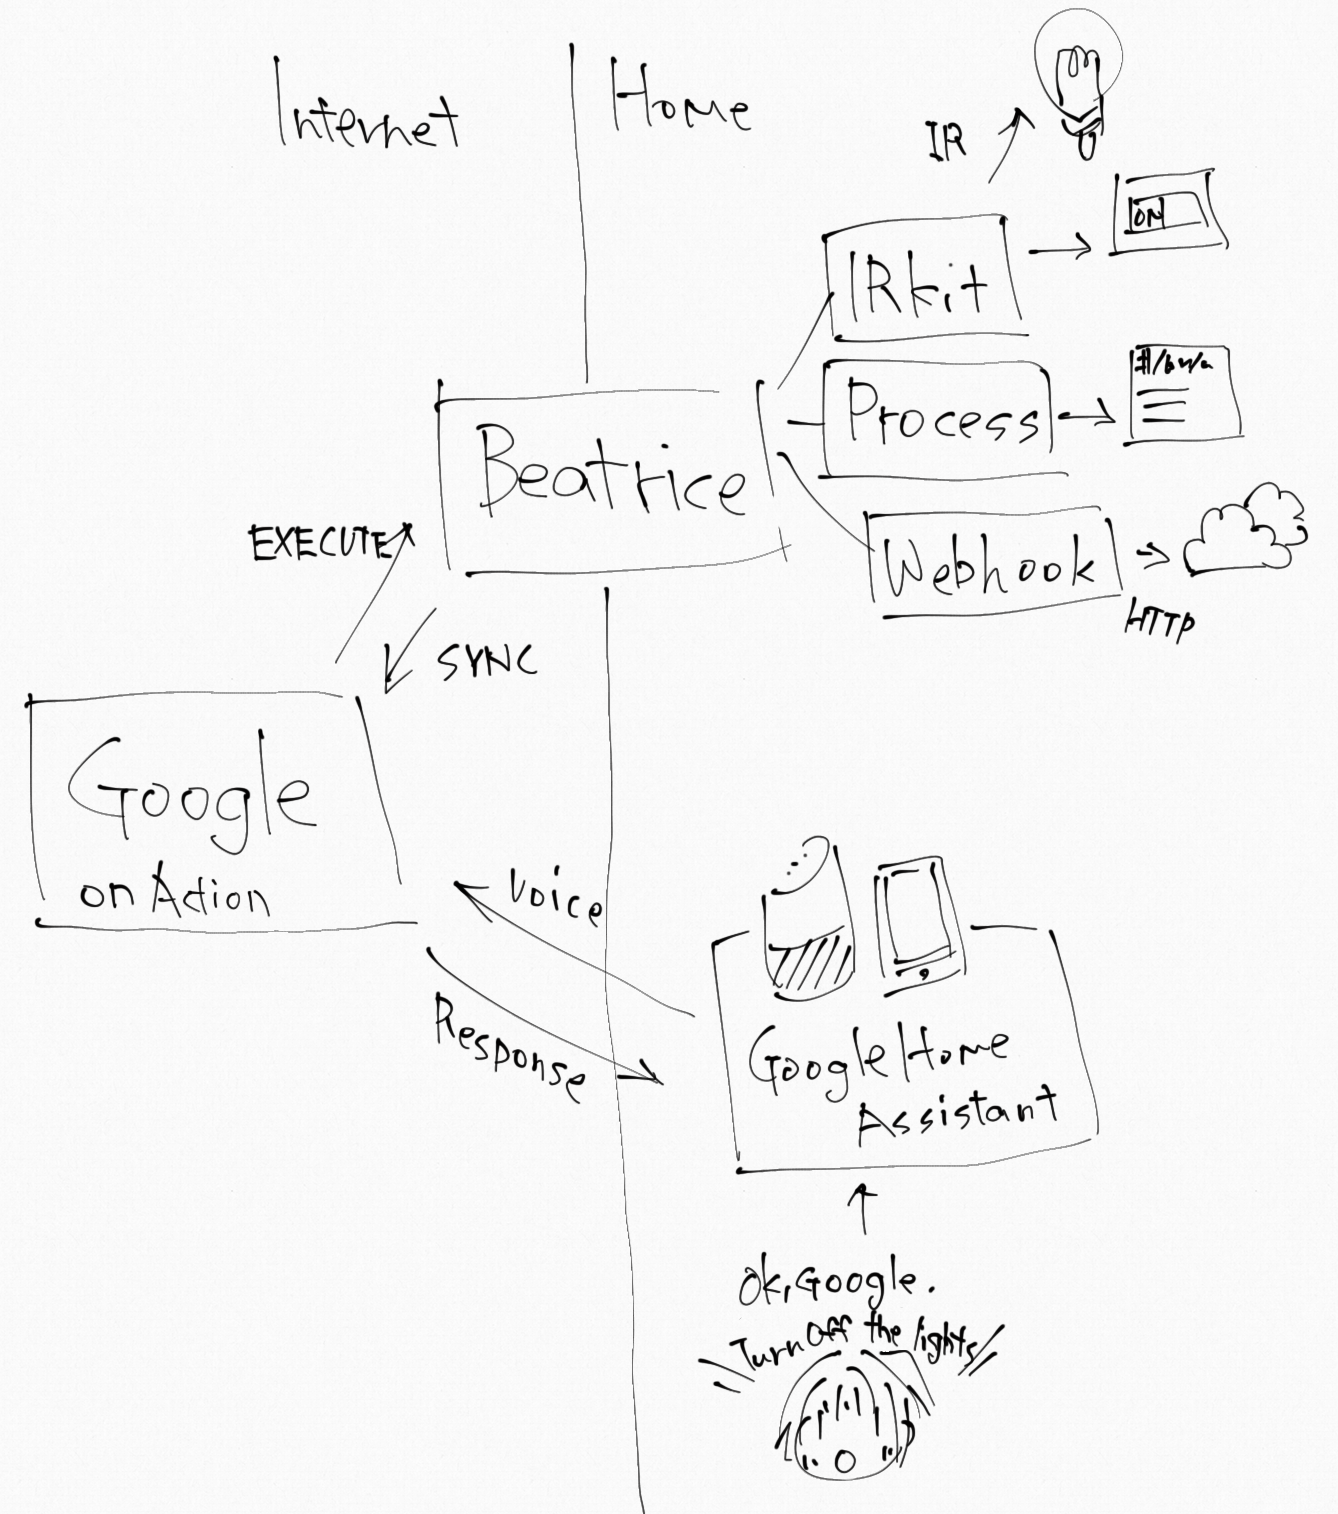 Internet
Home
IR
ON
IRkit
Process
Beatrice
EXECUTE
Webhook
HTTP
SYNC
Google
on Action
Voice
Response
Google Home
Assistant
Ok, Google.
Turn Off the lights